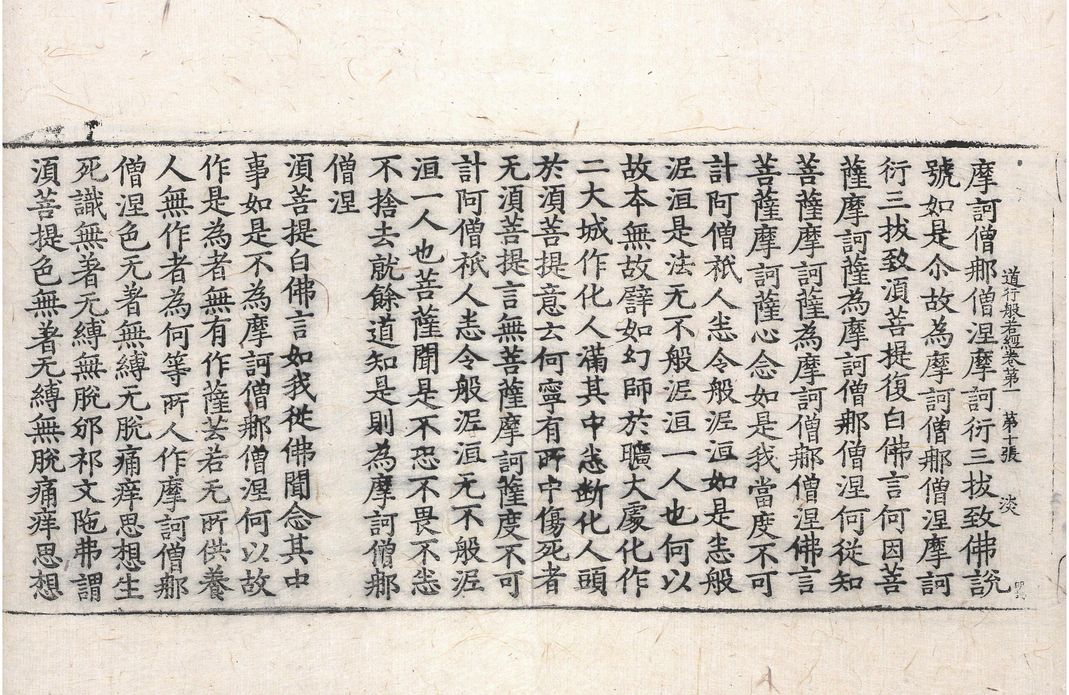 道行般若經卷第一　第十張　淡
摩訶僧那僧涅摩訶衍三拔致佛說
號如是尒故為摩訶僧那僧涅摩訶
衍三拔致須菩提復白佛言何因菩
薩摩訶薩為摩訶僧那僧涅何從知
菩薩摩訶薩為摩訶僧那僧涅佛言
菩薩摩訶薩心念如是我當度不可
計阿僧祇人悉令般泥洹如是悉般
泥洹是法无不般泥洹一人也何以
故本無故譬如幻師於曠大處化作
二大城作化人滿其中悉斷化人頭
於須菩提意云何寧有所中傷死者
无須菩提言無菩薩摩訶薩度不可
計阿僧祇人悉令般泥洹无不般泥
洹一人也菩薩聞是不恐不畏不悉
不捨去就餘道知是則為摩訶僧那
僧涅
須菩提白佛言如我從佛聞念其中
事如是不為摩訶僧那僧涅何以故
作是為者無有作薩芸若无所供養
人無作者為何等所人作摩訶僧那
僧涅色无著無縛无脫痛痒思想生
死識無著无縛無脫邠祁文陁弗謂
須菩提色無著无縛無脫痛痒思想